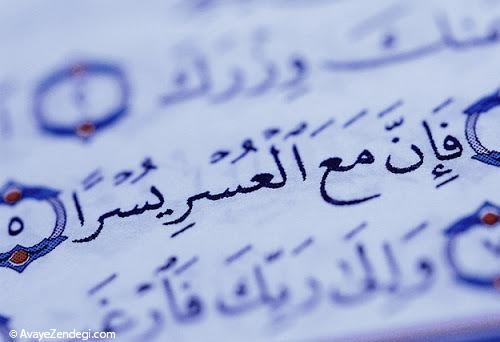 عنك وزرك ٢
فَإِنَّ مَعَ ٱلْعُسْرِ يُسْرًا ٥
وَإِلَىٰ رَبِّكَ فَٱرْغَب
© AvayeZendegi.com